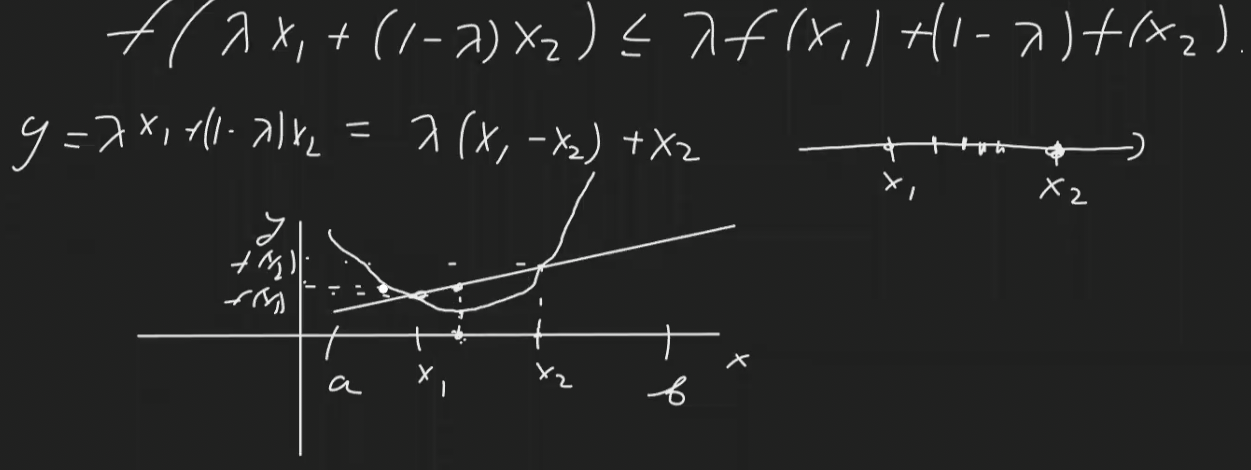 f(λx₁ + (1-λ)x₂) ≤ λf(x₁) + (1-λ)f(x₂).
y = λx₁ + (1-λ)x₂ = λ(x₁ - x₂) + x₂
x₁ x₂
y
f(x₂)
f(x₁)
a x₁ x₂ b x